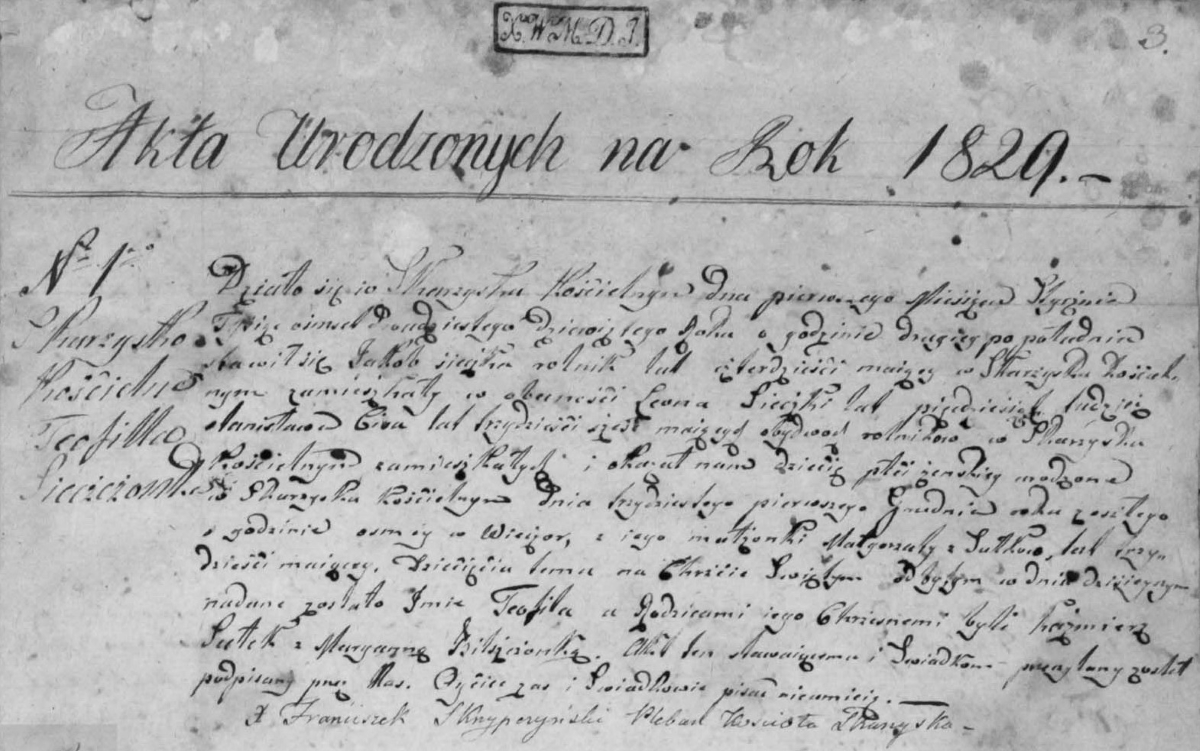 X. W. M. D. J.
3.
Akta Urodzonych na Rok 1829.-
Nr 1o
Skarzysko
Kościelne
Teofilla
Sieczczonka
Działo się w Skarzysku Kościelnym dnia pierwszego Miesiąca Stycznia
Tysiąc ośmset Dwudziestego dziewiątego Roku o godzinie drugiey po południu
stawił się Jakób sieczka rolnik lat czterdzieści maiący w Skarzysku Kościel,
nym zamieszkały w obecności Leona Sieczki lat pięćdziesiąt tudzież
stanisława Civa lat trzydzieści sześć maiących obydwoch rolników w Skarzysku
Kościelnym zamieszkałych i okazał nam dziecię płci żenskiey urodzone
w Skarzysku kościelnym dnia trzydziestego pierwszego Grudnia roku zeszłego
o godzinie osmey w Wieczor, z iego małżonki Małgorzaty z Sułkow, lat trzy,
dzieści maiącey. Dziecięciu temu na Chrzcie Swiętym odbytym w dniu dzisieyszym
nadane zostało Imie Teofila a Rodzicami iego Chrzesnemi byli Kaźmierz
Sułek z Maryanną. Akt ten stawaiącemu i Swiadkom przeczytany został
podpisany przez Nas. Oyciec zas i Swiadkowie pisać nieumieią.
X Franciszek Skrypczyński Pleban Kościoła Skarzysko-